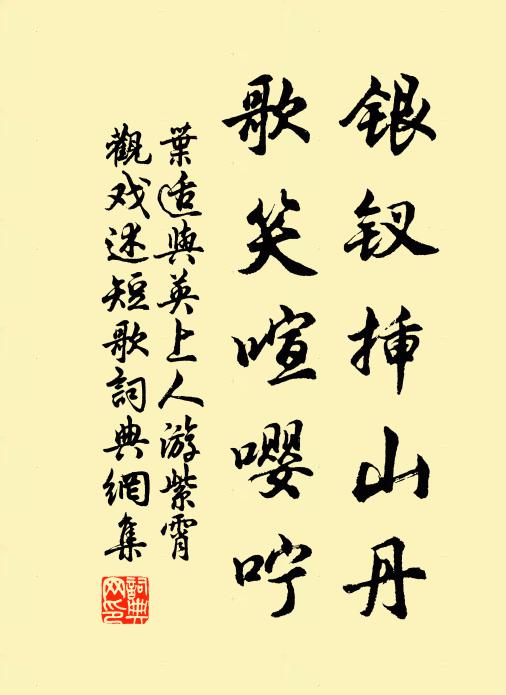 银钗挿山丹
歌笑喧嘤咛
葉适與英上人游紫霄
觀戏述短歌詞典網集
詞典网印